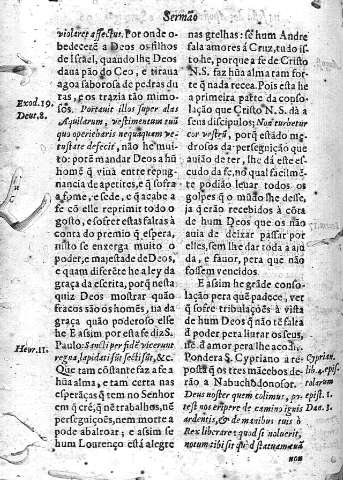 Sermão
violaret affectus. Por onde o-
bedecerẽ a Deos os filhos
de Israel, quando lhe Deos
daua pão do Ceo, e tiraua
agoa saborosa de pedras du
ras, e os trazia tão mimo-
sos. Portauit illos super alas
Aquilarum, vestimentum tuũ
quo operiebaris nequaquam ve-
tustate defecit, não he mui-
to: porẽ mandar Deos a hũ
homẽ q̃ viua entre repug-
nancia de apetites, e q̃ sofra
a fome, e sede, e q̃ acabe a
fè cõ elle reprimir todo o
gosto, e sofrer estas faltas à
conta do premio q̃ espera,
nisto se enxerga muito o
poder, e majestade de Deos,
e quam diferẽte he a ley da
graça da escrita, porq̃ nesta
quiz Deos mostrar quão
fracos são os homẽs, na da
graça quão poderoso elle
he E assim por esta fè diz S.
Paulo: Sancti per fidẽ vicerunt
regna, lapidati sũt secti sũt, &c.
Que tam cõstante faz a fe a
hũa alma, e tam certa nas
esperãças q̃ tem no Senhor
em q̃ crè, q̃ nẽ trabalhos, nẽ
perseguições, nem morte a
pode abalroar; e assim se
hum Lourenço està alegre
Exod. 19.
Deut. 8.
Heur. 11.
nas grelhas: sè hum Andre
fala amores á Cruz, tudo is-
to he, porque a fe de Cristo
N.S. faz hũa alma tam for-
te q̃ nada recea. Pois esta he
a primeira parte da conso-
lação que Cristo N.S. dà a
seus discipulos; Non turbetur
cor vestrũ, porq̃ estado me-
drosos da perseguição que
auião de ter, lhe dà este es-
cudo da fe, no qual facilmẽ-
te podião leuar todos os
golpes q̃ o mũdo lhe desse,
ja q̃ erão recebidos à cõta
de hum Deos que os não
auia de deixar passar por
elles, sem lhe dar toda a aju
da, e fauor, pera que não
fossem vencidos.
E assim he grãde conso-
lação pera quẽ padece, ver
q̃ sofre tribulações à vista
de hum Deos q̃ não tẽ falta
d poder pera liurar os seus,
nẽ d amor pera lhe acodir.
Pondera S. Cypriano a re-
posta q̃ os tres mãcebos de-
rão a Nabuchodonosor.
Deus noster quem colimus, po-
test nos eripere de camino ignis
ardentis, & de manibus tuis ò
Rex liberare: quod si noluerit,
notum tibi sit quod statuam tuã
non
Cyprian.
lib. 4. epis-
tolarum
epist. 1.
Dan. 3.